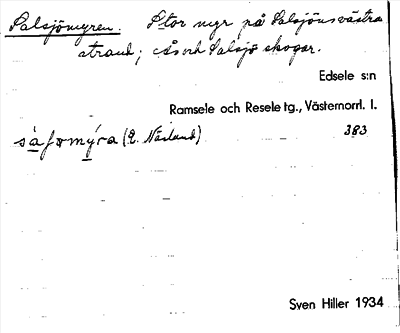 Salsjömyren. Stor myr på Salsjöns västra
strand; Ås och Salsjö skogar.
Edsele s:n
Ramsele och Resele tg., Västernorrl. l.
(E. Näslund) 383
Sven Hiller 1934